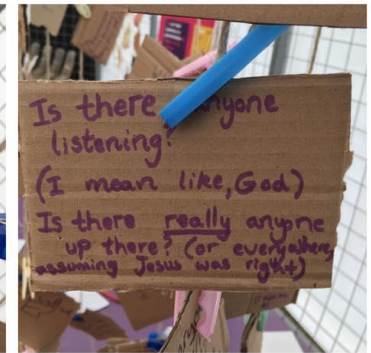 Is there anyone
listening?
(I mean like, God)
Is there really anyone
up there? (or everywhere,
assuming Jesus was right)